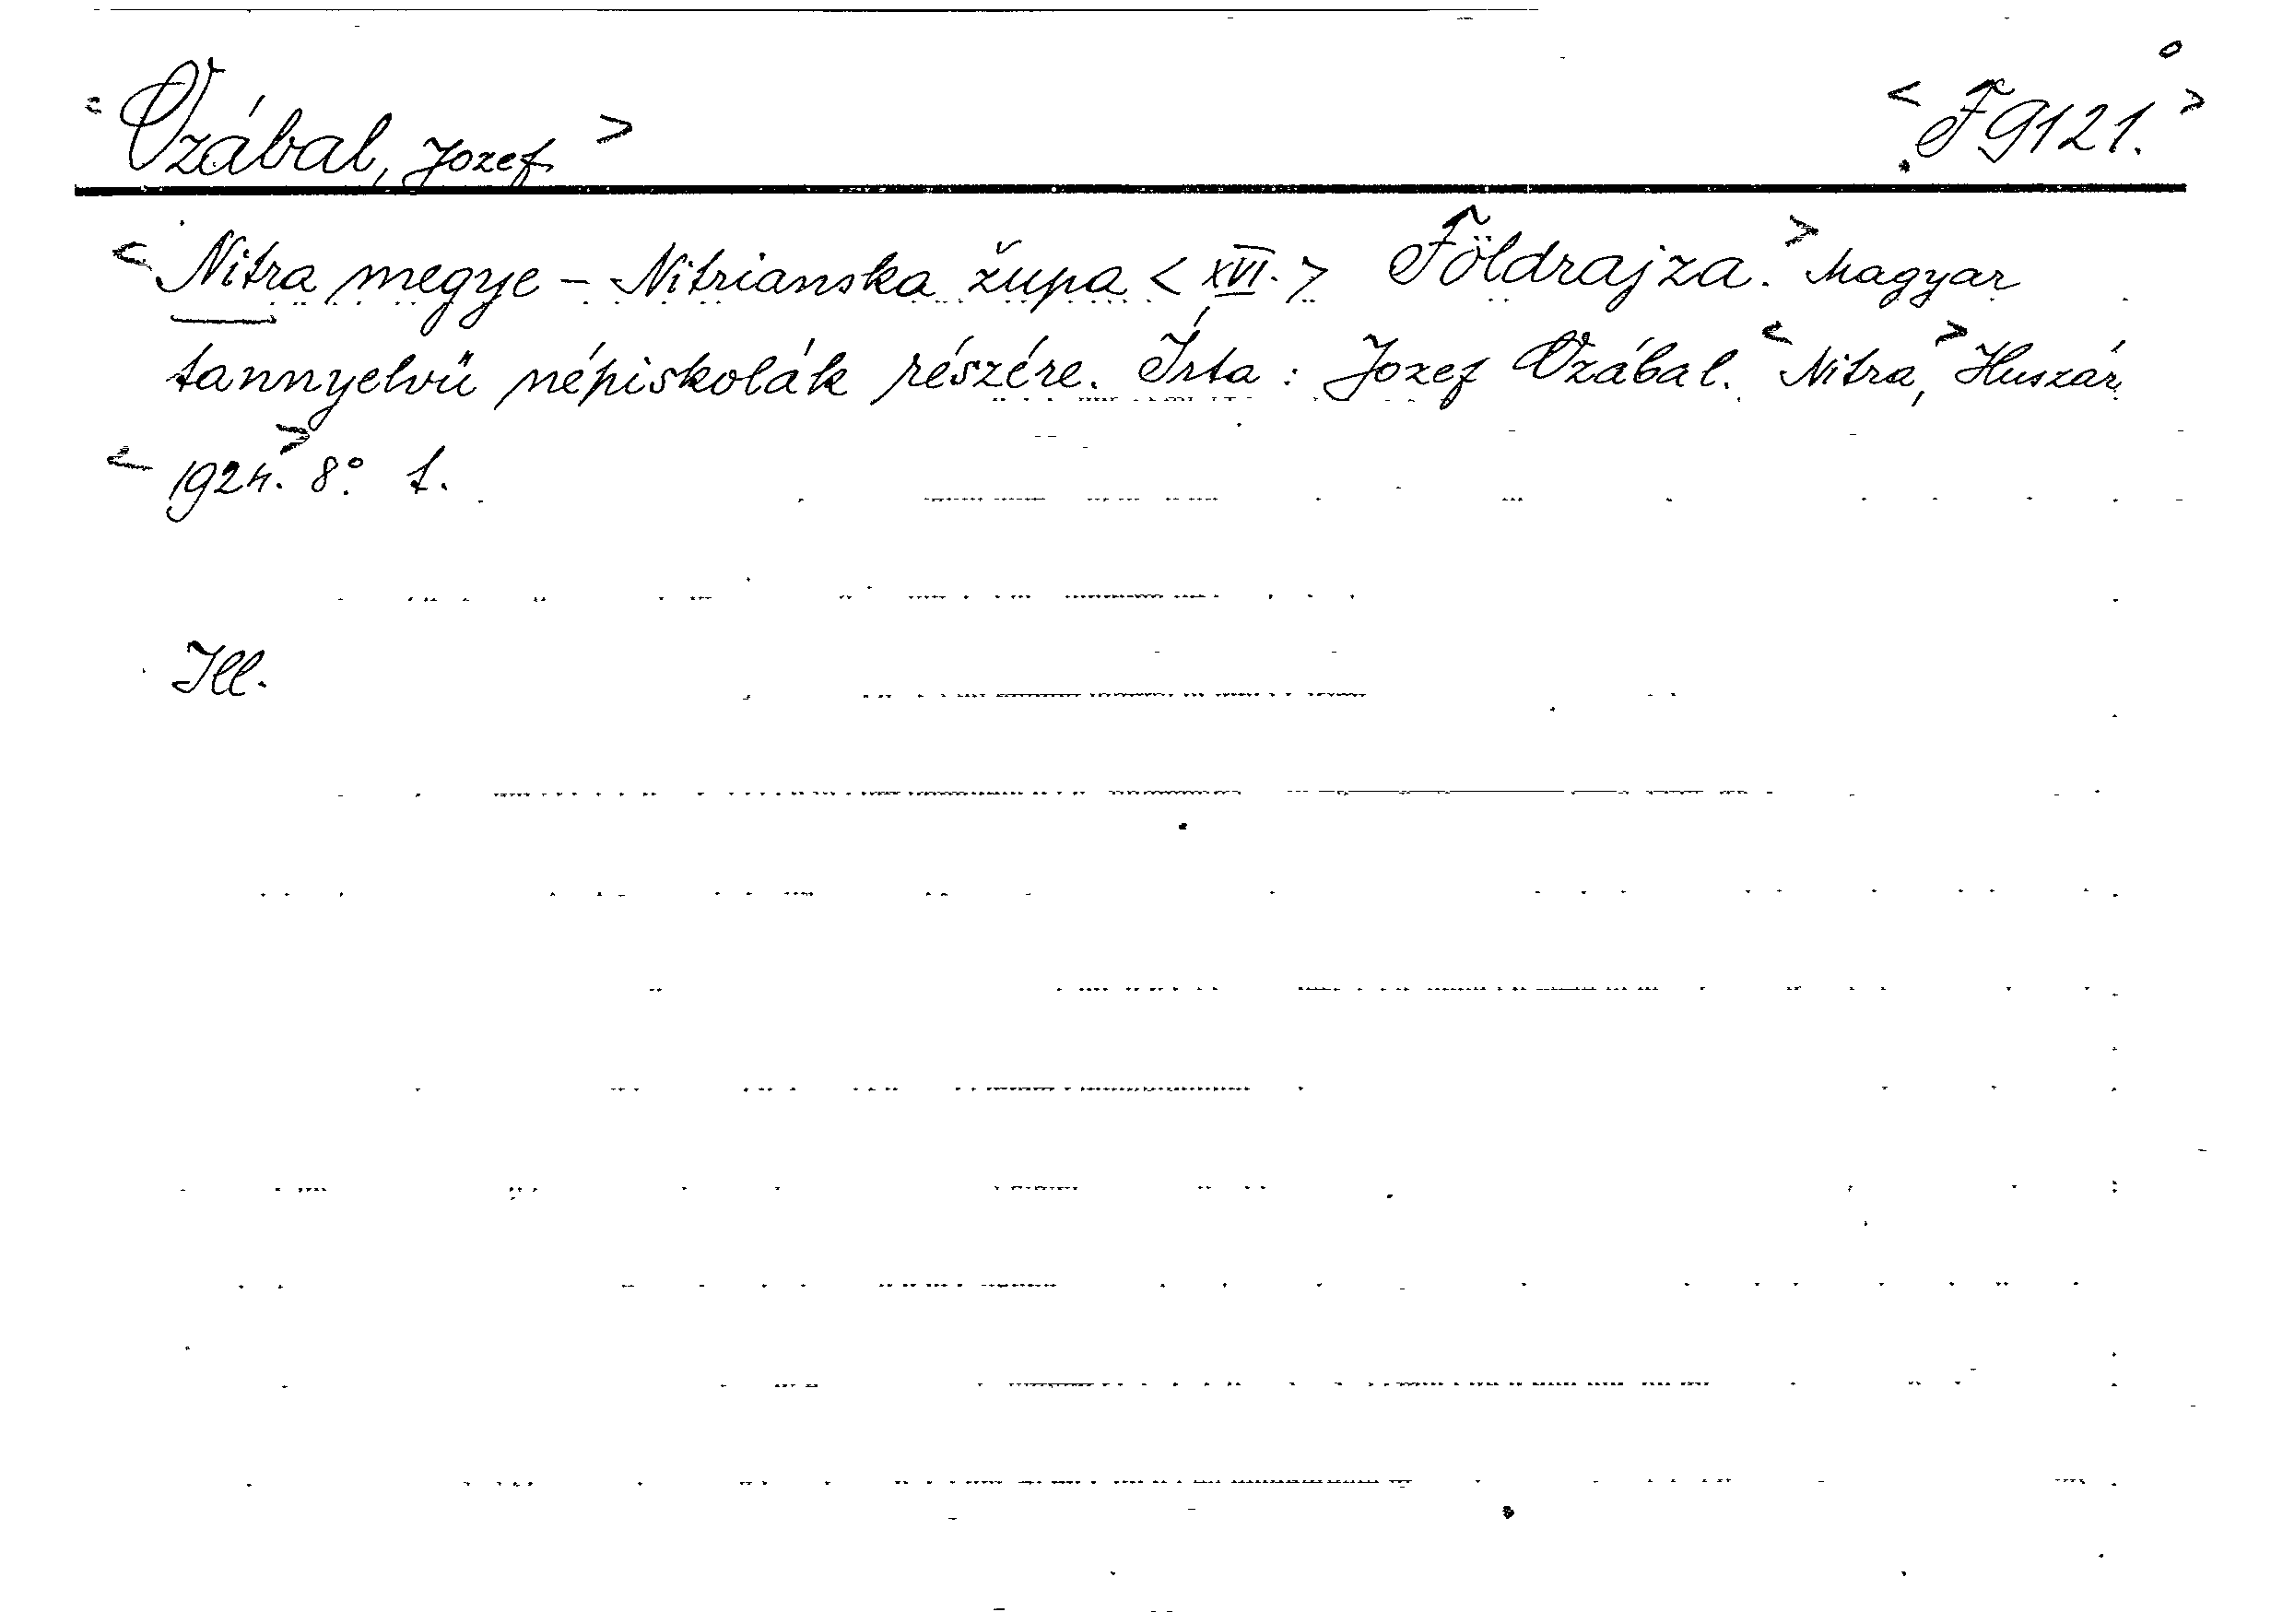 <Vzábal, Jozef> <F 9121.>
<Nitra megye - Nitrianska župa <XVI.> Földrajza.> Magyar
tannyelvü népiskolák részére. Írta: Jozef Vzábal. <Nitra,> Huszár
<1924.> 8° 1.
Ill.